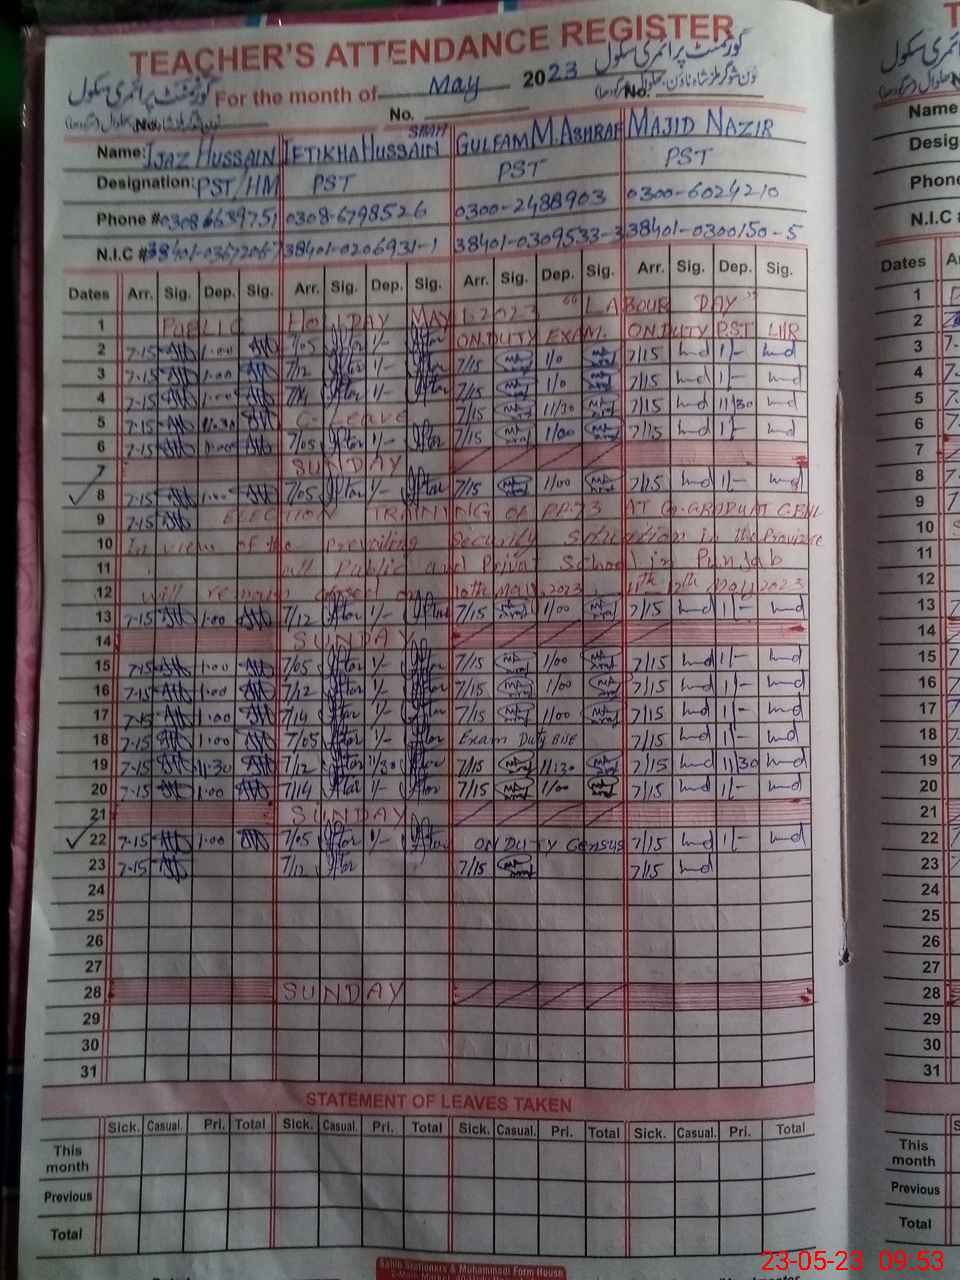 TEACHER'S ATTENDANCE REGISTER
گورنمنٹ پرائمری سکول
گورنمنٹ پرائمری سکول
For the month of May 2023
No. No. No.
Name: IJAZ HUSSAIN IFTIKHAR HUSSAIN SHAH GULFAM M.ASHRAF MAJID NAZIR
Designation: PST/HM PST PST PST
Phone # 0308-6798526 0300-2488903 0300-6024210
N.I.C # 38401-0206931-1 38401-0309533-3 38401-0300150-5
Dates Arr. Sig. Dep. Sig. Arr. Sig. Dep. Sig. Arr. Sig. Dep. Sig. Arr. Sig. Dep. Sig.
1 PUBLIC HOLIDAY MAY 1-2023 "LABOUR DAY"
2 7-15 1.00 7/05 1/- ON DUTY EXAM. ON DUTY PST LHR
3 7-15 1.00 7/12 1/- 7/15 1/0 7/15 1/-
4 7-15 1.00 7/14 1/- 7/15 1/0 7/15 1/-
5 7-15 11.30 C-Leave 7/15 11/30 7/15 11/30
6 7-15 1.00 7/05 1/- 7/15 1/00 7/15 1/-
7 SUNDAY
8 7-15 1.00 7/05 1/- 7/15 1/00 7/15 1/-
9 7-15 ELECTION TRAINING OF PP-73 AT
10 In view of the prevailing security situation in the Province
11 all Public and Privat School in Punjab
12 will remain closed on 10th May 2023, 11th, 12th May 2023
13 7-15 1.00 7/12 1/- 7/15 1/00 7/15 1/-
14 SUNDAY
15 7-15 1.00 7/05 1/- 7/15 1/00 7/15 1/-
16 7-15 1.00 7/12 1/- 7/15 1/00 7/15 1/-
17 7-15 1.00 7/14 1/- 7/15 1/00 7/15 1/-
18 7-15 1.00 7/05 1/- Exam Duty BISE 7/15 1/-
19 7-15 11.30 7/12 11/30 7/15 11.30 7/15 11/30
20 7-15 1.00 7/14 1/- 7/15 1/00 7/15 1/-
21 SUNDAY
22 7-15 1.00 7/05 1/- ON DUTY Census 7/15 1/-
23 7-15 7/12 7/15 7/15
24
25
26
27
28 SUNDAY
29
30
31
STATEMENT OF LEAVES TAKEN
Sick. Casual. Pri. Total Sick. Casual. Pri. Total Sick. Casual. Pri. Total Sick. Casual. Pri. Total
This month
Previous
Total
Name
Desig
Phone
N.I.C #
Dates
1
2
3
4
5
6
7
8
9
10
11
12
13
14
15
16
17
18
19
20
21
22
23
24
25
26
27
28
29
30
31
This month
Previous
Total
23-05-23 09:53